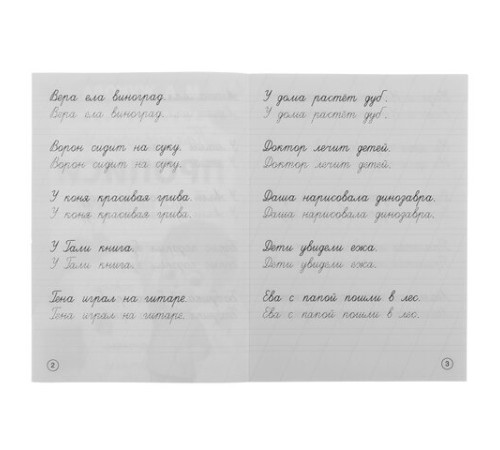 Вера ела виноград.
Вера ела виноград.
Ворон сидит на суку.
Ворон сидит на суку.
У коня красивая грива.
У коня красивая грива.
У Гали книга.
У Гали книга.
Гена играл на гитаре.
Гена играл на гитаре.
2
У дома растёт дуб.
У дома растёт дуб.
Доктор лечит детей.
Доктор лечит детей.
Даша нарисовала динозавра.
Даша нарисовала динозавра.
Дети увидели ежа.
Дети увидели ежа.
Ева с папой пошли в лес.
Ева с папой пошли в лес.
3